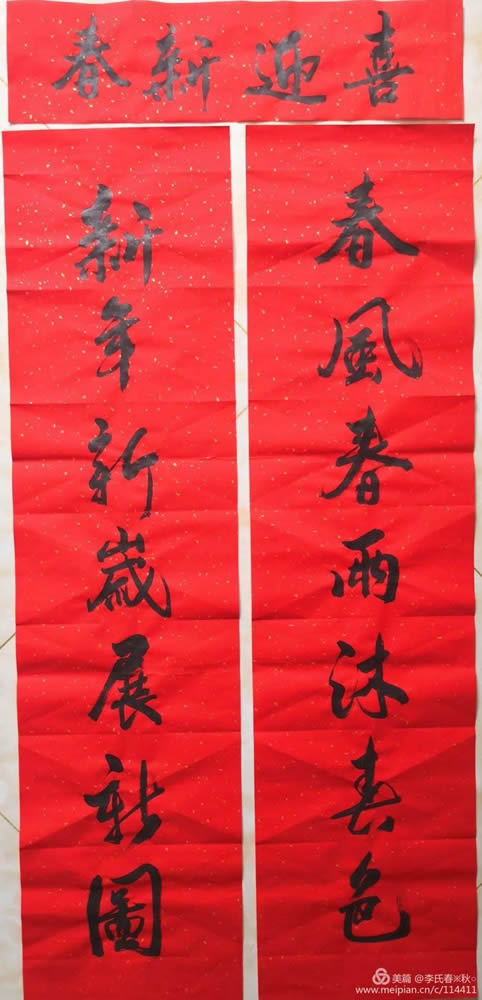 喜迎新春
春風春雨沐春色
新年新歲展新圖
美篇 @李氏春※秋○
www.meipian.cn/c/114411